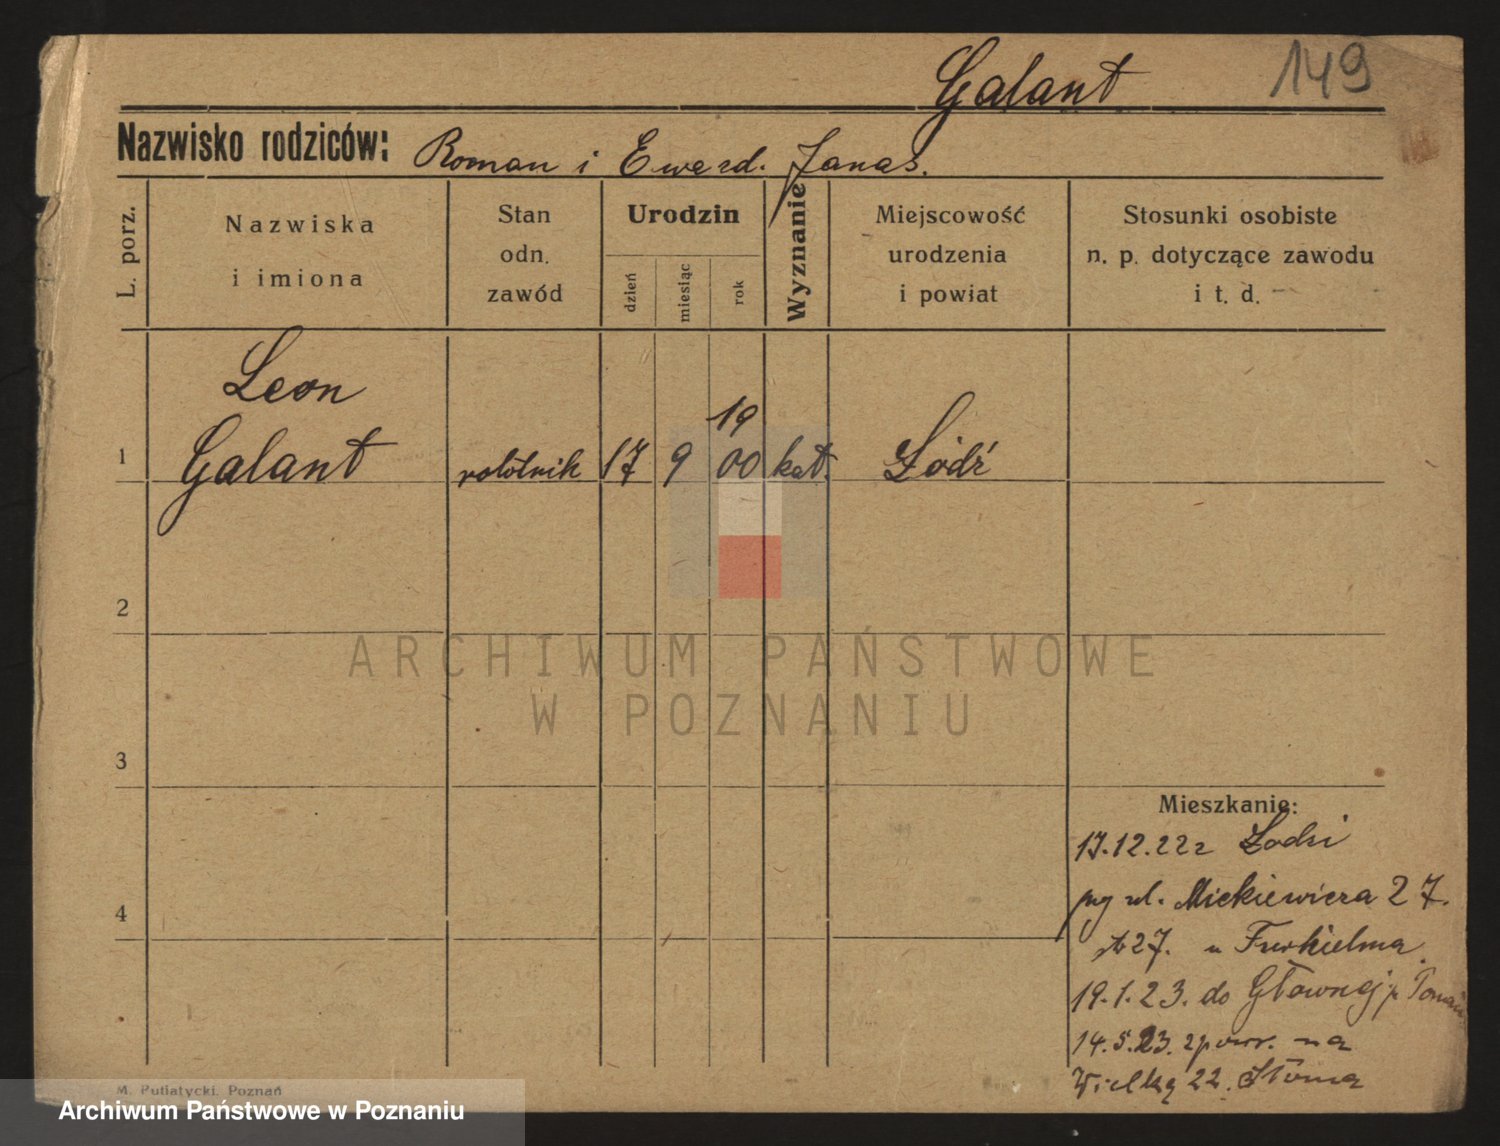 Galant 149
Nazwisko rodziców: Roman i Ewa rd. Janas.
L. porz.
Nazwiska
i imiona
Stan
odn.
zawód
Urodzin
dzień
miesiąc
rok
Wyznanie
Miejscowość
urodzenia
i powiat
Stosunki osobiste
n. p. dotyczące zawodu
i t. d.
Leon
19
1 Galant robotnik 17 9 00 kat. Łódź
2
ARCHIWUM PAŃSTWOWE
W POZNANIU
3
Mieszkanie:
17.12.22 z Łodzi
ul. Mickiewicza 27.
27. u
4
19.1.23. do Głównej p. Poznań
14.5.23. z pow. na
Wielką 22. Słoma
M. Putiatycki, Poznań
Archiwum Państwowe w Poznaniu